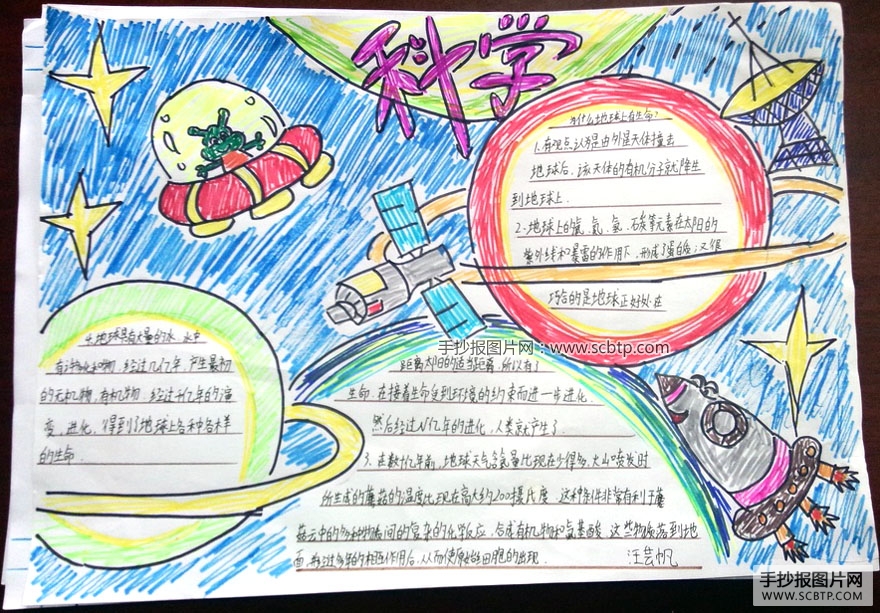 科学
为什么地球上有生命?
1.有观点认为是由外星天体撞击
地球后,该天体的有机分子就降生
到地球上.
2.地球上的氮、氢、石炭等元素在太阳的
紫外线和暴雷的作用下,形成了蛋白质;又很
巧合的是地球正好处在
手抄报图片网:www.scbtp.com
距离太阳的适当距离,所以有了
生命.在接着生命受到环境的约束而进一步进化,
然后经过N亿年的进化,人类就产生了.
3、在数十亿年前,地球天气含氧量比现在少得多.火山喷发时
所生成的蘑菇的温度比现在高大约200摄氏度 这种条件非常有利于蘑
菇云中的多种物质间的复杂的化学反应,合成有机物和氨基酸 这些物质落到地
面,经过多年的相互作用后,从而使原始细胞的出现.
汪芸帆
4.地球具有大量的水.水中
有矿物化和物,经过几亿年,产生最初
的无机物.有机物.经过千亿年的演
变、进化,得到了地球上各种各样
的生命.
手抄报图片网
WWW.SCBTP.COM